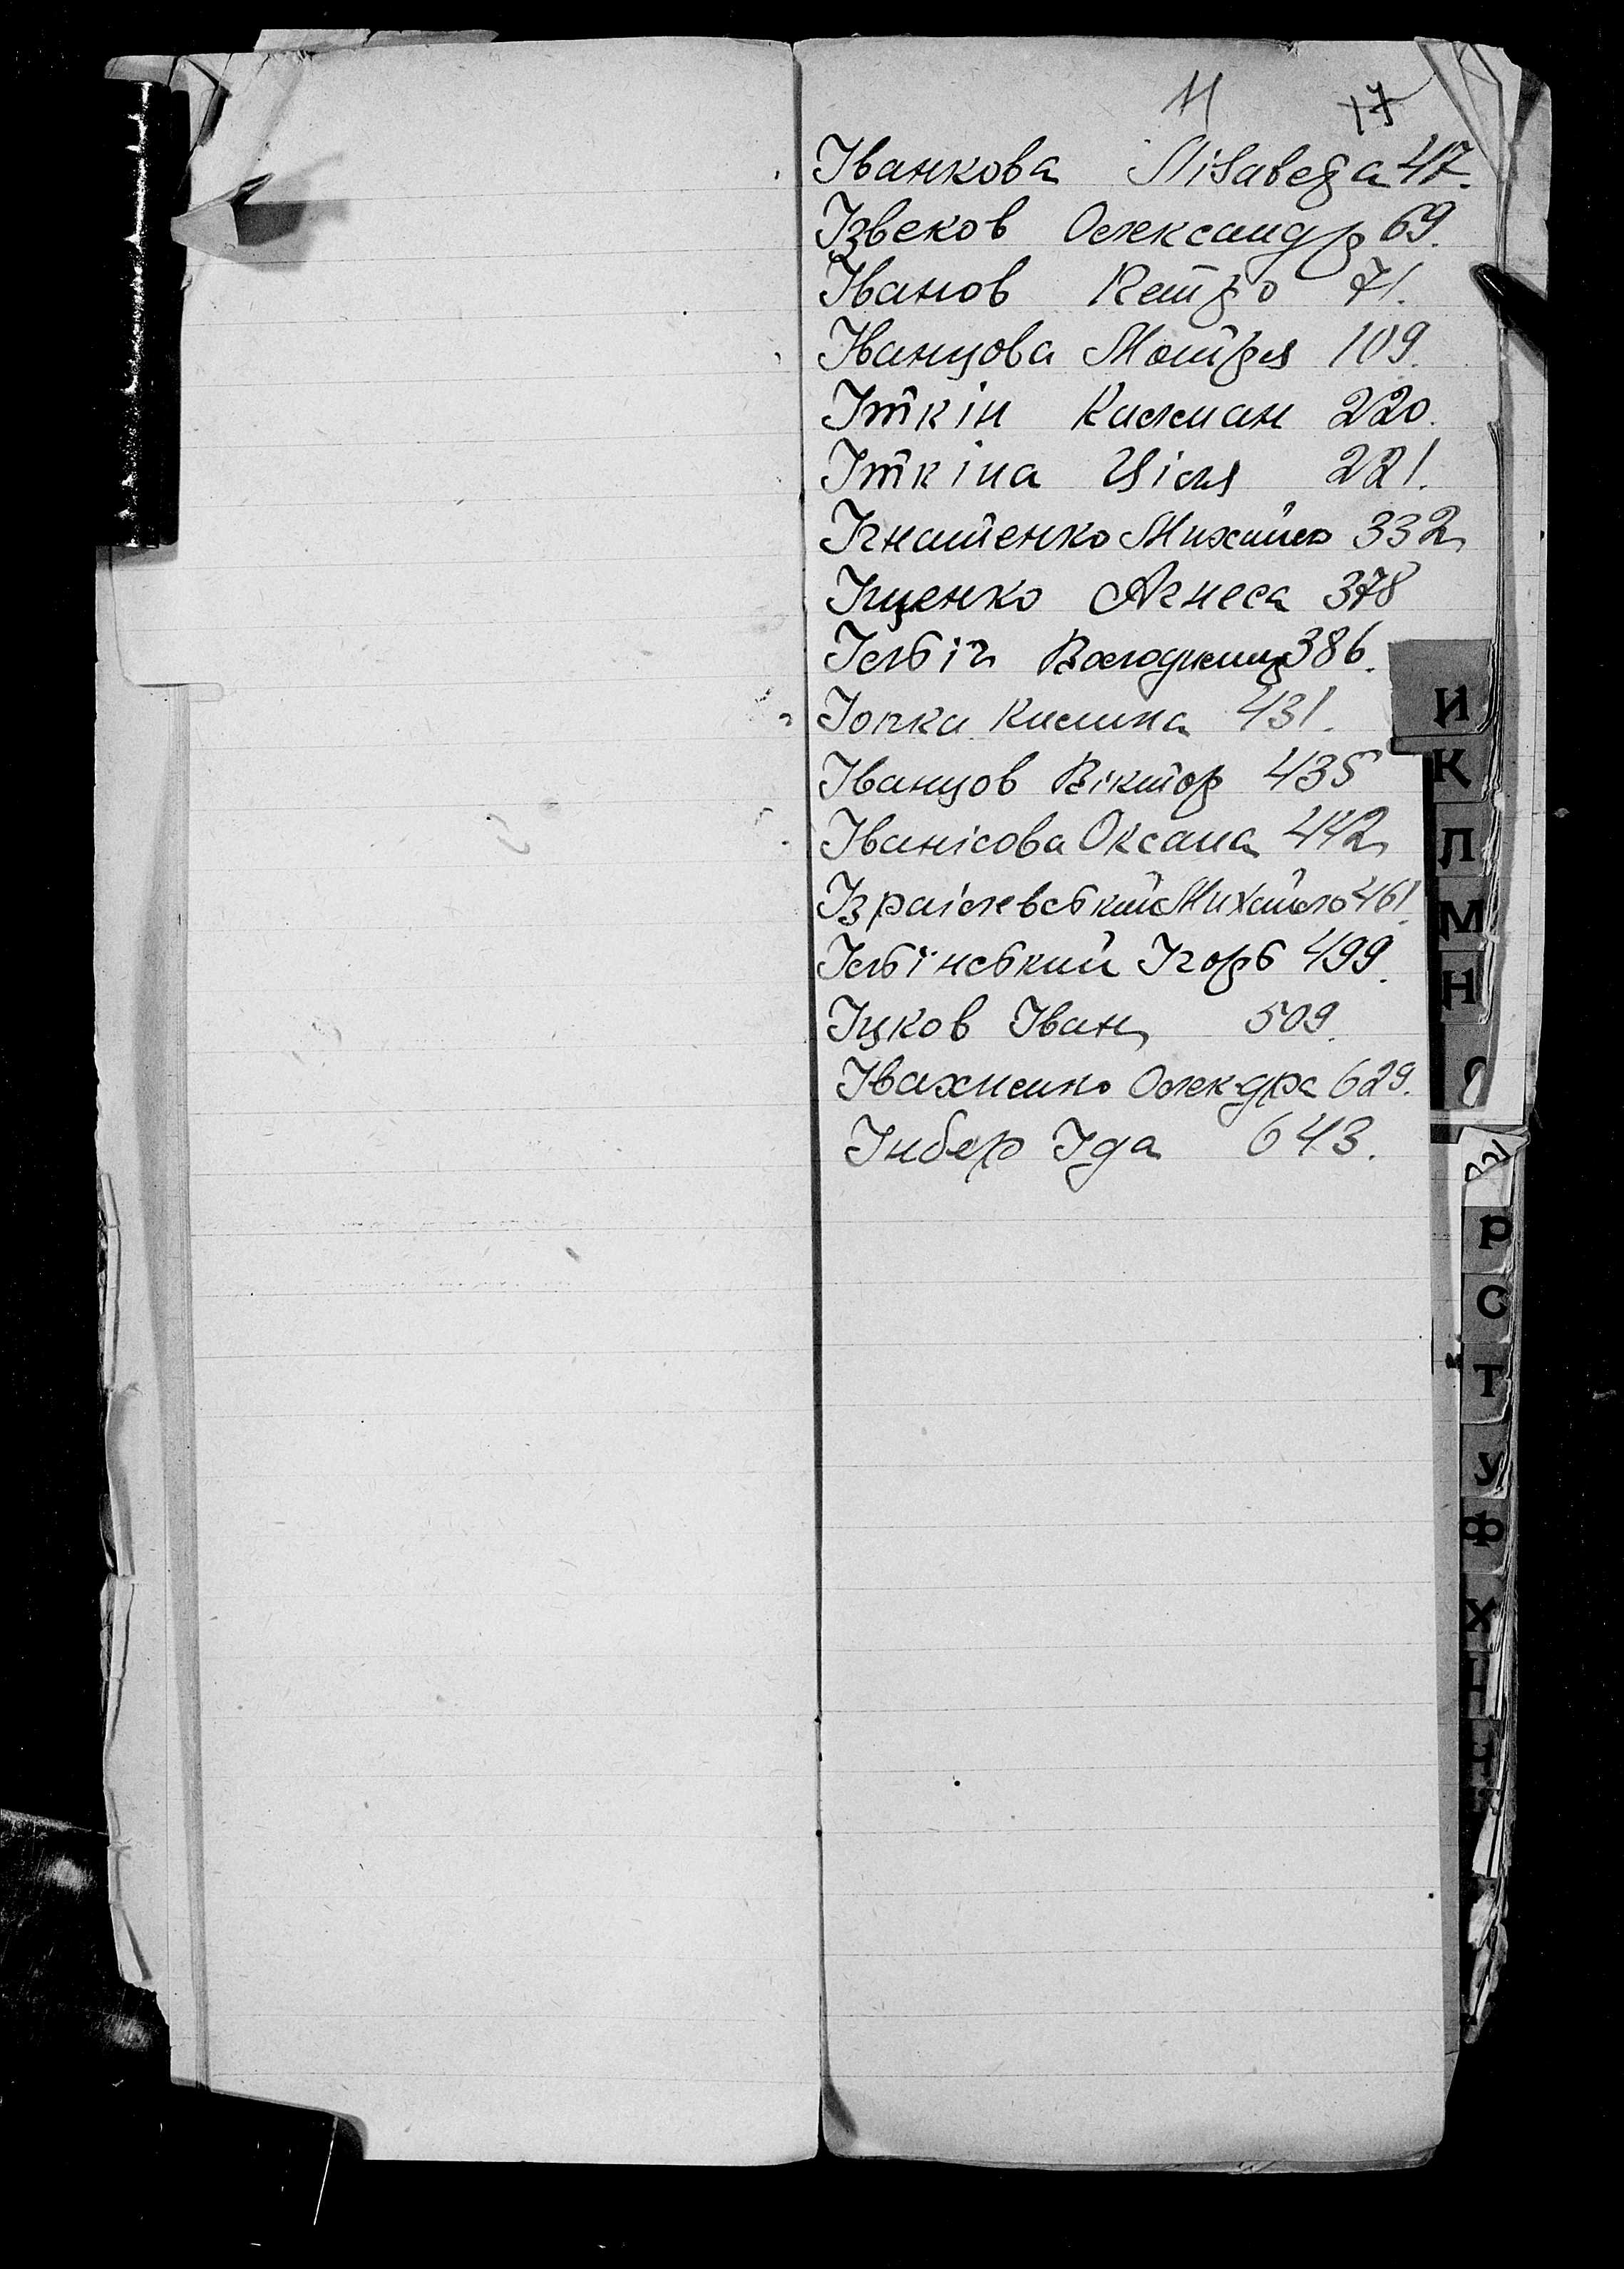 И 17
Іванкова Єлісавета 47.
Ізвеков Олександр 69.
Іванов Петро 71.
Іванцова Мотря 109.
Іткін Калман 220.
Іткіна Циля 221.
Ігнатенко Михайло 332
Іщенко Агнеса 378
Ільїн Володимир 386.
Іопка Килина 431.
Іванцов Віктор 435
Іванісова Оксана 442
Ізраілевський Михайло 461.
Ільїнський Ігорь 499.
Іцков Іван 509.
Івахненко Олек-дра 629.
Інбер Іда 643.
И
К
Л
М
Н
Р
С
Т
У
Ф
Х